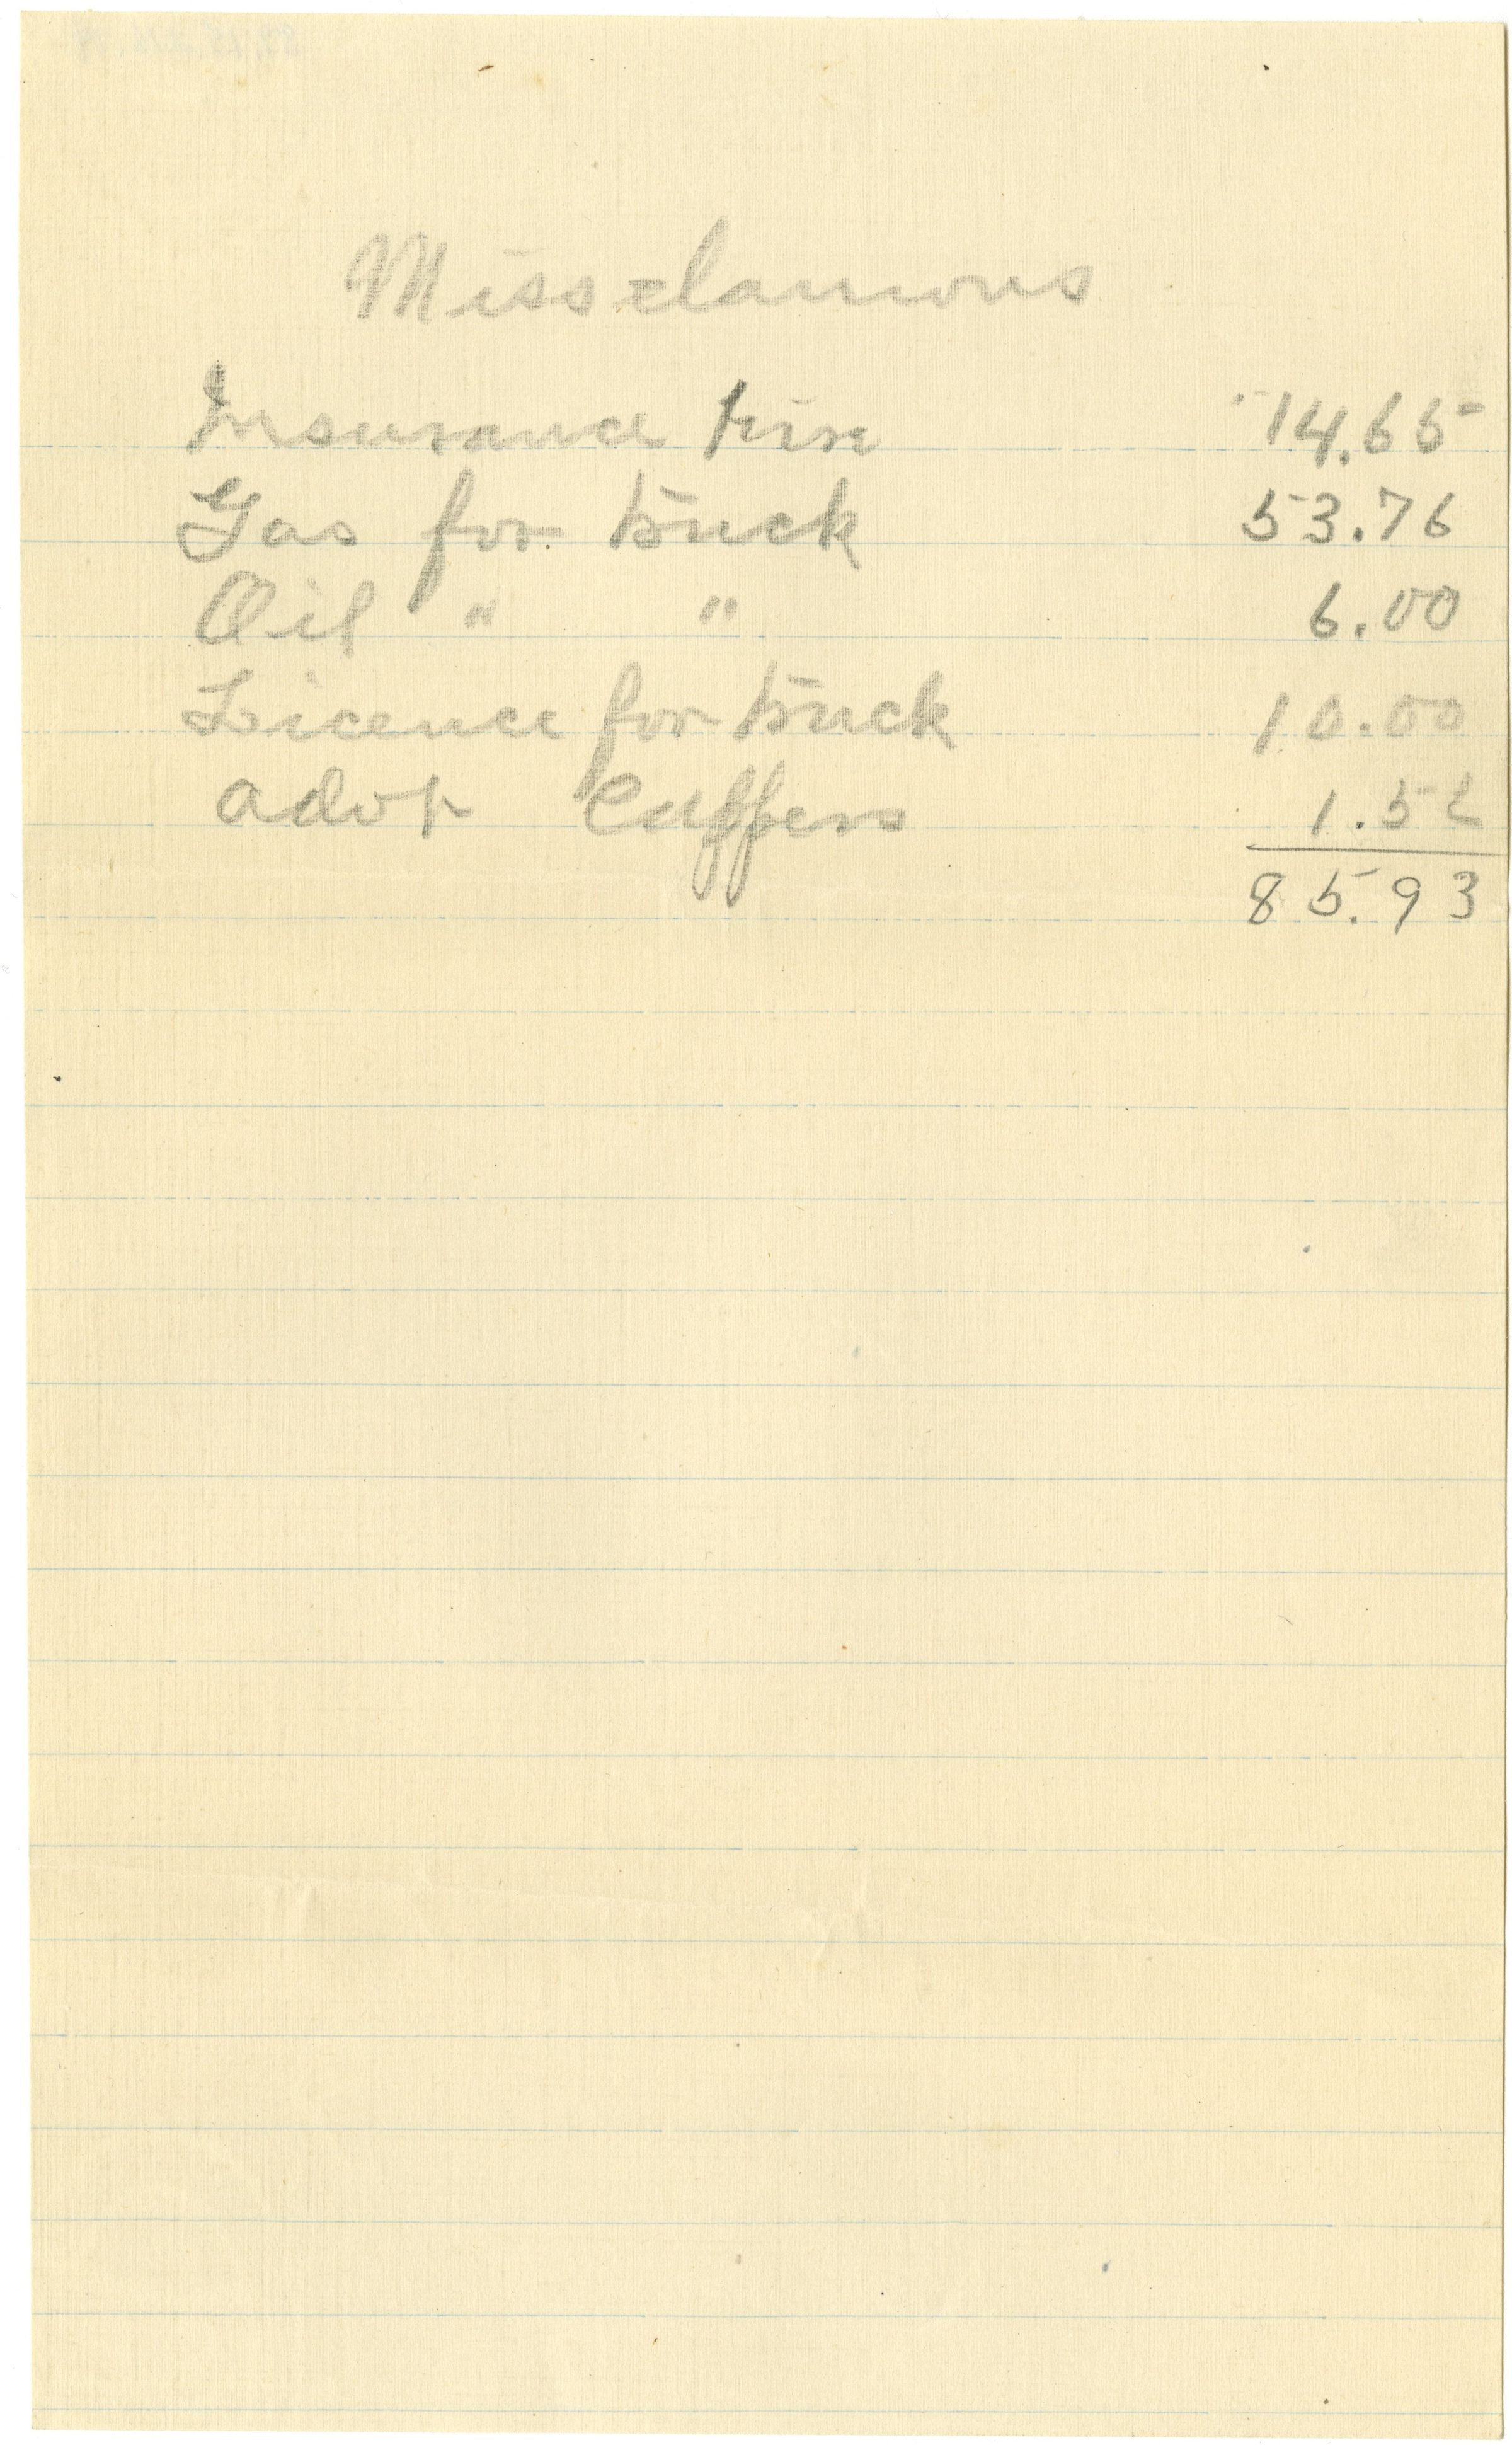 Misselanious
Insurance Fire 14.65
Gas for truck 53.76
Oil " " 6.00
Licence for truck 10.00
advt 1.52
85.93